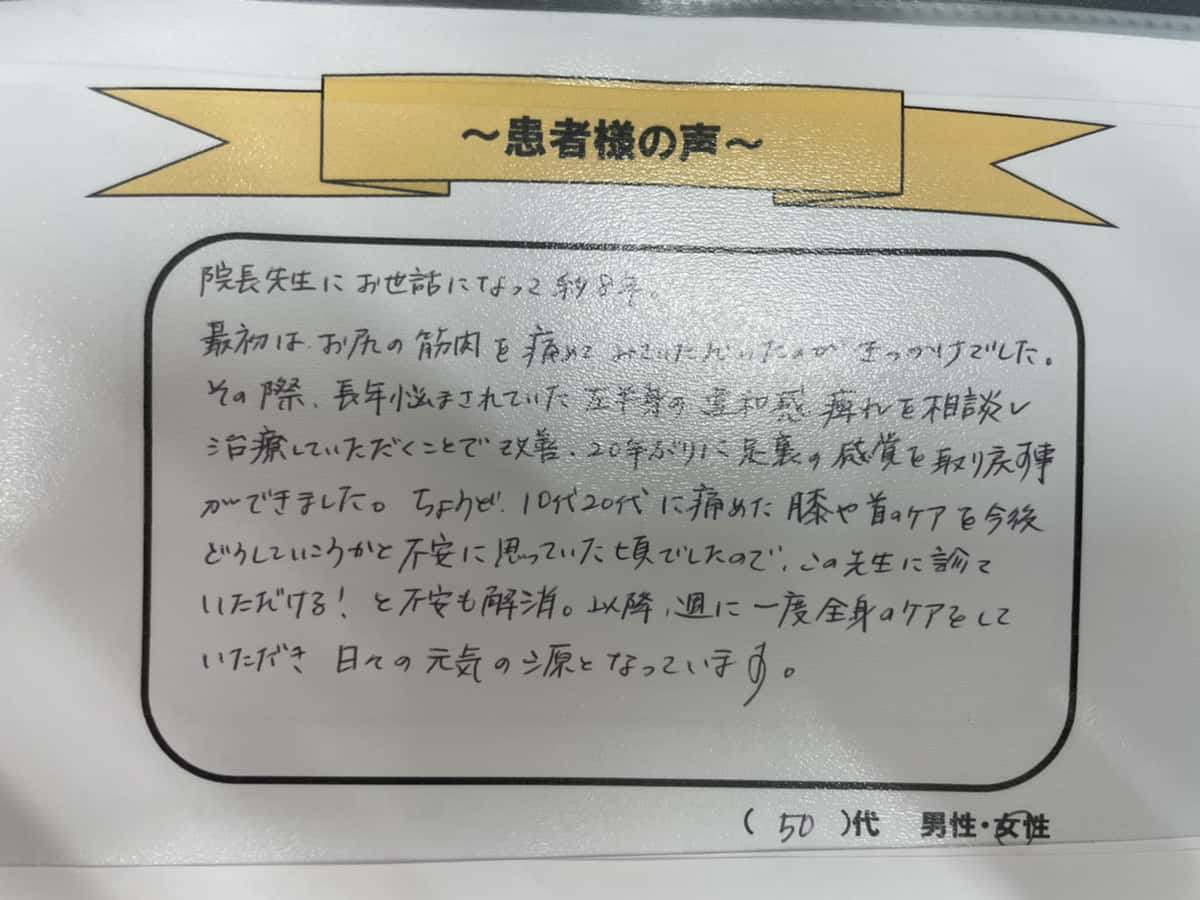 ～患者様の声～
院長先生にお世話になって約8年。
最初は、お尻の筋肉を痛めてみていただいたのがきっかけでした。
その際、長年悩まされていた左半身の違和感 痺れを相談し
治療していただくことで改善、20年ぶりに足裏の感覚を取り戻す事
ができました。ちょうど、10代20代に痛めた膝や首のケアを今後
どうしていこうかと不安に思っていた頃でしたので、この先生に診て
いただける！と不安も解消。以降、週に一度全身のケアをして
いただき 日々の元気の源となっています。
（50）代 男性・女性